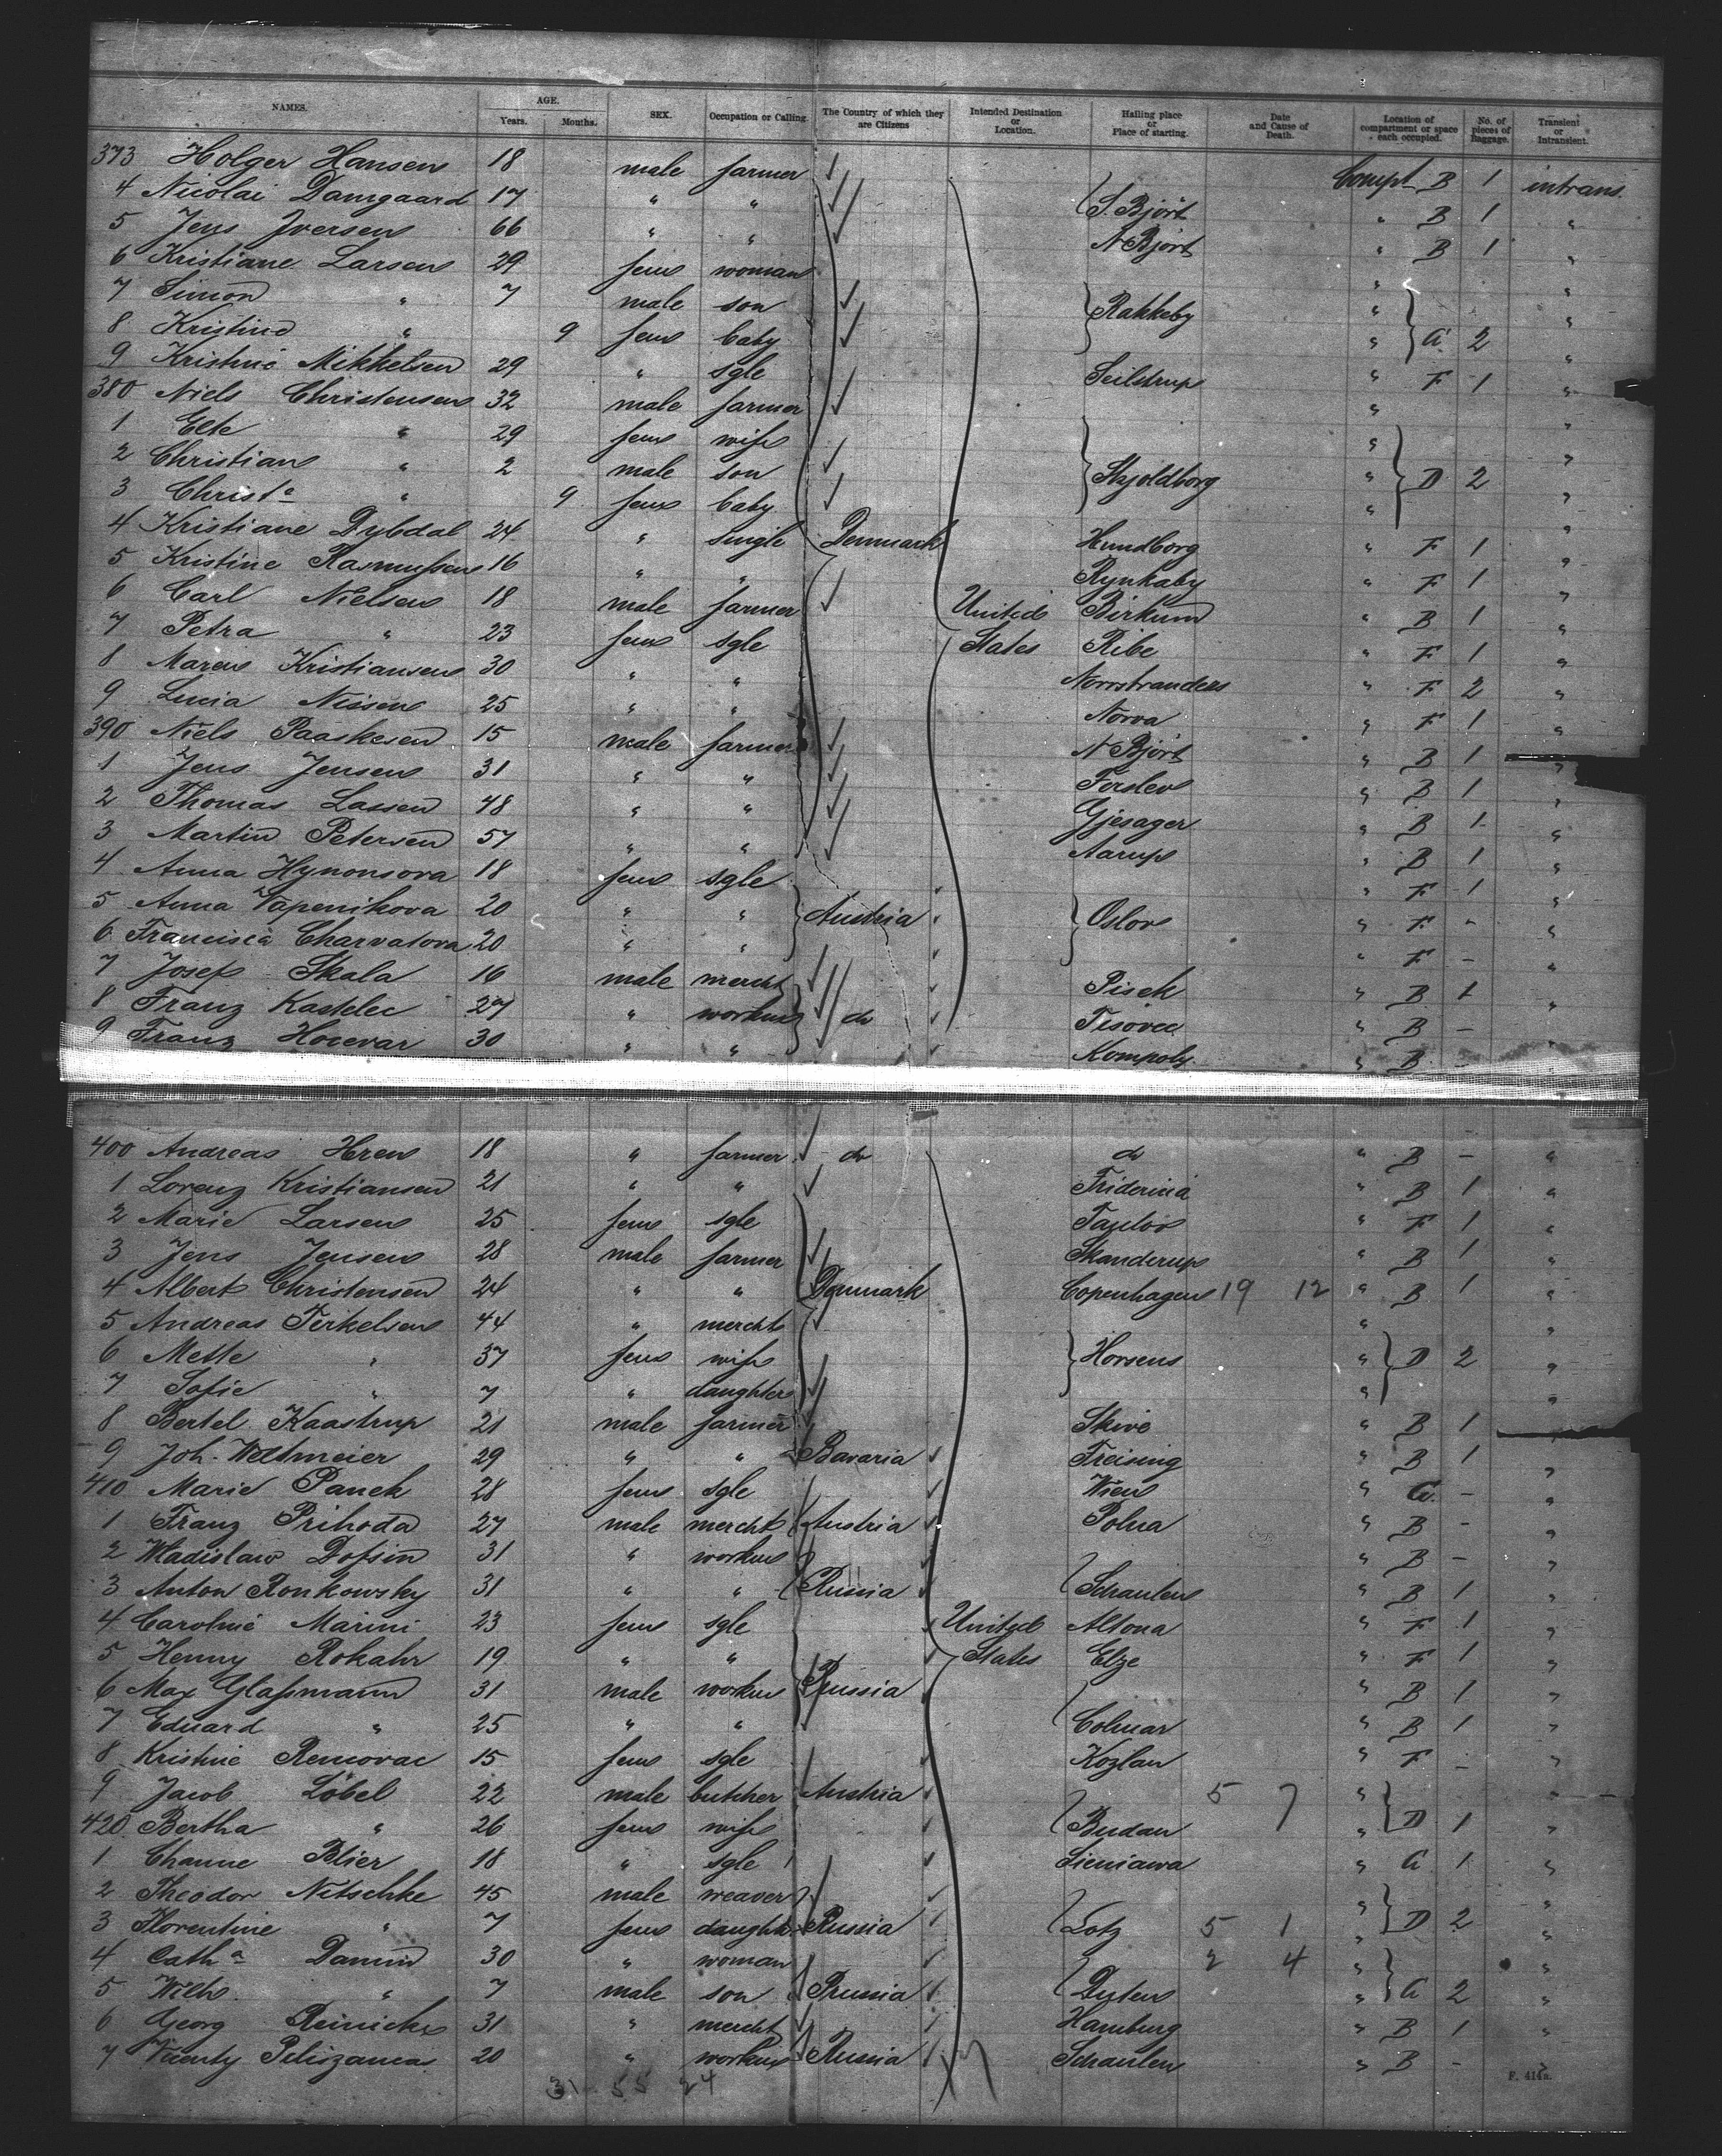 NAMES. AGE. Years. Months. SEX. Occupation or Calling. The Country of which they are Citizens Intended Destination or Location. Halling place or Place of starting. Date and Cause of Death. Location of compartment or space each occupied. No. of pieces of Baggage. Transient or Intransient.
373 Holger Hansen 18 male farmer Compt B 1 intrans.
4 Nicolai Damgaard 17 " " S. Björt " B 1 "
5 Jens Iversen 66 " " N Björt " B 1 "
6 Kristiane Larsen 29 fem woman " "
7 Simon " 7 male son Rakkeby " "
8 Kristine " 9 fem baby " G 2 "
9 Kristine Mikkelsen 29 " sgle Seilstrup " F 1 "
380 Niels Christensen 32 male farmer " "
1 Else " 29 fem wife " "
2 Christian " 2 male son Skjoldborg " D 2 "
3 Christe " 9 fem baby " "
4 Kristiane Dybdal 24 " single Denmark Hundborg " F 1 "
5 Kristine Rasmussen 16 " " Rynkaby " F 1 "
6 Carl Nielsen 18 male farmer United Birkum " B 1 "
7 Petra " 23 fem sgle States Ribe " F 1 "
8 Maren Kristiansen 30 " " Norrstranders " F 2 "
9 Lucia Nissen 25 " " Norva " F 1 "
390 Niels Paaskesen 15 male farmer N Björt " B 1 "
1 Jens Jensen 31 " " Forslev " B 1 "
2 Thomas Lassen 48 " " Gjesager " B 1 "
3 Martin Petersen 57 " " Aarup " B 1 "
4 Anna Hynonsova 18 fem sgle " F 1 "
5 Anna Vapenikova 20 " " Austria Oslov " F - "
6 Francisca Charvatova 20 " " " F - "
7 Josef Skala 16 male mercht Pisek " B 1 "
8 Franz Kastelec 27 " workm do Tisovec " B - "
9 Franz Hocevar 30 " " Kompoly " B -
400 Andreas Hren 18 " farmer do do " B - "
1 Lorenz Kristiansen 21 " " Fridericia " B 1 "
2 Marie Larsen 25 fem sgle Taulov " F 1 "
3 Jens Jensen 28 male farmer Skanderup " B 1 "
4 Albert Christensen 24 " " Denmark Copenhagen 19 12 " B 1 "
5 Andreas Terkelsen 44 " mercht " "
6 Mette " 37 fem wife Horsens " D 2 "
7 Sofie " 7 " daughter " "
8 Bertel Kaastrup 21 male farmer Skive " B 1 "
9 Joh. Weltmeier 29 " " Bavaria Freising " B 1 "
410 Marie Panek 28 fem sgle Wien " G -  "
1 Franz Prihoda 27 male mercht Austria Polna " B - "
2 Wladislaw 31 " workm " B - "
3 Anton Ronkowsky 31 " " Russia Schaulen " B 1 "
4 Caroline Marini 23 fem sgle United Altona " F 1 "
5 Henny Rokahr 19 " " States Elze " F 1 "
6 Max Glaßmann 31 male workm Prussia " B 1 "
7 Eduard " 25 " " Colmar " B 1 "
8 Kristine Renovac 15 fem sgle Kozlan " F - "
9 Jacob Löbel 22 male butcher Austria 5 7 " "
420 Bertha " 26 fem wife Budan " D 1 "
1 Channe Blier 18 " sgle Sieniawa " G 1 "
2 Theodor Nitschke 45 male weaver " "
3 Florentine " 7 fem daughter Russia Lotz 5 1 " D 2 "
4 Catha Damm 30 " woman 2 4 " "
5 Wilh. " 7 male son Prussia " G 2 "
6 Georg Reinicke 31 " mercht Hamburg " B 1 "
7 20 " workm Russia Schaulen " B - "
31 55 24
F. 414a.